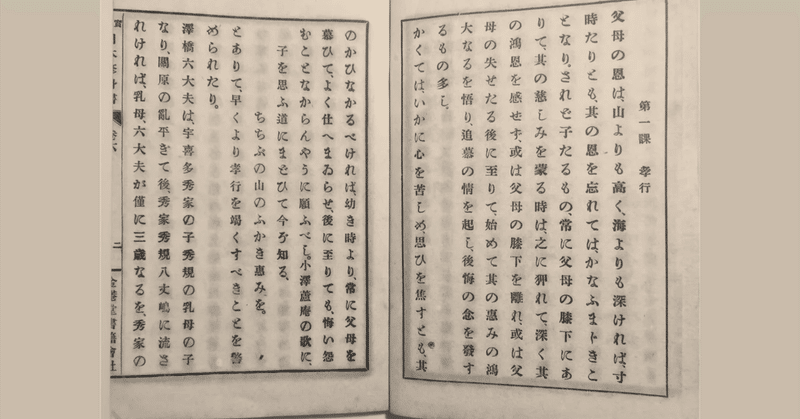 第一課　孝行
父母の恩は、山よりも高く、海よりも深ければ、寸
時たりとも、其の恩を忘れてはかなふまじきこ
となり。されど子たるもの、常に父母の膝下にあ
りて、其の慈しみを蒙る時は、之に狎れて深く其
の鴻恩を感せず、或は父母の膝下を離れ、或は父
母の失せたる後に至りて、始めて其の恵みの鴻
大なるを悟り、追慕の情を起し、後悔の念を發す
るもの多し。
かくては、いかに心を苦しめ、思ひを焦すとも、其
のかひなかるべければ、幼き時より、常に父母を
慕ひて、よく仕へまゐらせ、後に至りても、悔い怨
むことなからんやうに願ふべし。小澤蘆庵の歌に、
子を思ふ道にまどひて今ぞ知る、
ちちぶの山のふかき惠みを。
とありて、早くより孝行を竭くすべきことを警
められたり。
澤橋六大夫は、宇喜多秀家の子秀規の乳母の子
なり。關原の亂平ぎて後、秀家秀規八丈嶋に流さ
れければ、乳母、六大夫が僅に三歳なるを、秀家の
修身書
卷六
二
金港堂書籍會社